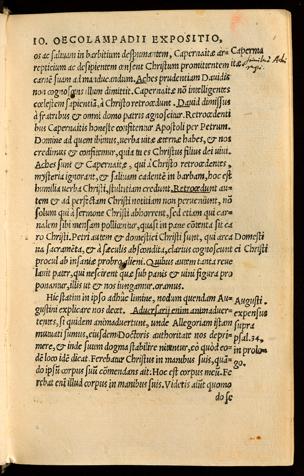 IO. OECOLAMPADII EXPOSITIO,
os ac saliuam in barbitium despumantem, Capernaitæ ar-
repticium ac desipientem censent Christum promittentem
carnē suam ad manducandum. Aches prudentiam Dauidis
non cognoscens illum dimittit. Capernaitæ nō intelligentes
cœlestem sapientiā, à Christo retrocedunt. Dauid dimissus
à fratribus & omni domo patris agnoscitur. Retrocedenti
bus Capernaitis honeste confitentur Apostoli per Petrum.
Domine ad quem ibimus, uerba uitæ æternæ habes, & nos
credimus & confitemur, quia tu es Christus filius dei uiui.
Aches sunt & Capernaitæ, qui à Christo retrocedentes,
mysteria ignorant, & saliuam cadentē in barbam, hoc est
humilia uerba Christi, stultitiam credunt. Retrocedunt au-
tem & ad perfectam Christi notitiam non perueniunt, nō
solum qui à sermone Christi abhorrent, sed etiam qui car-
nalem sibi mensam pollicentur, quasi in pane cōtenta sit ca
ro Christi. Petri autem & domestici Christi sunt, qui arca
na sacramēta, & à sæculis abscondita, clarius cognoscunt
procul ab insaniæ probro alieni. Quibus autem tanta reue
lauit pater, qui nescirent quæ sub panis & uini figura pro
ponantur, illis ut & nos iungamur, oramus.
Hic statim in ipso adhuc limine, nodum quendam Au-
gustini explicare nos decet. Aduersarij enim animaduer-
tentes, si quidem animaduertunt, unde Allegoriam istam
mutuati sumus, eiusdem Doctoris authoritate nos depri-
mere, & inde suum dogma stabilire nituntur, eo quòd eo-
dē loco idē dicat. Ferebatur Christus in manibus suis, quā-
do ipsū corpus suū cōmendans ait: Hoc est corpus meū. Fe
rebat enī illud corpus in manibus suis. Videtis aūt quomo
do se
Caperna
itæ
Domesti
ci Christi
Augusti.
expensus
supra
psal.34.
in prolo-
go.